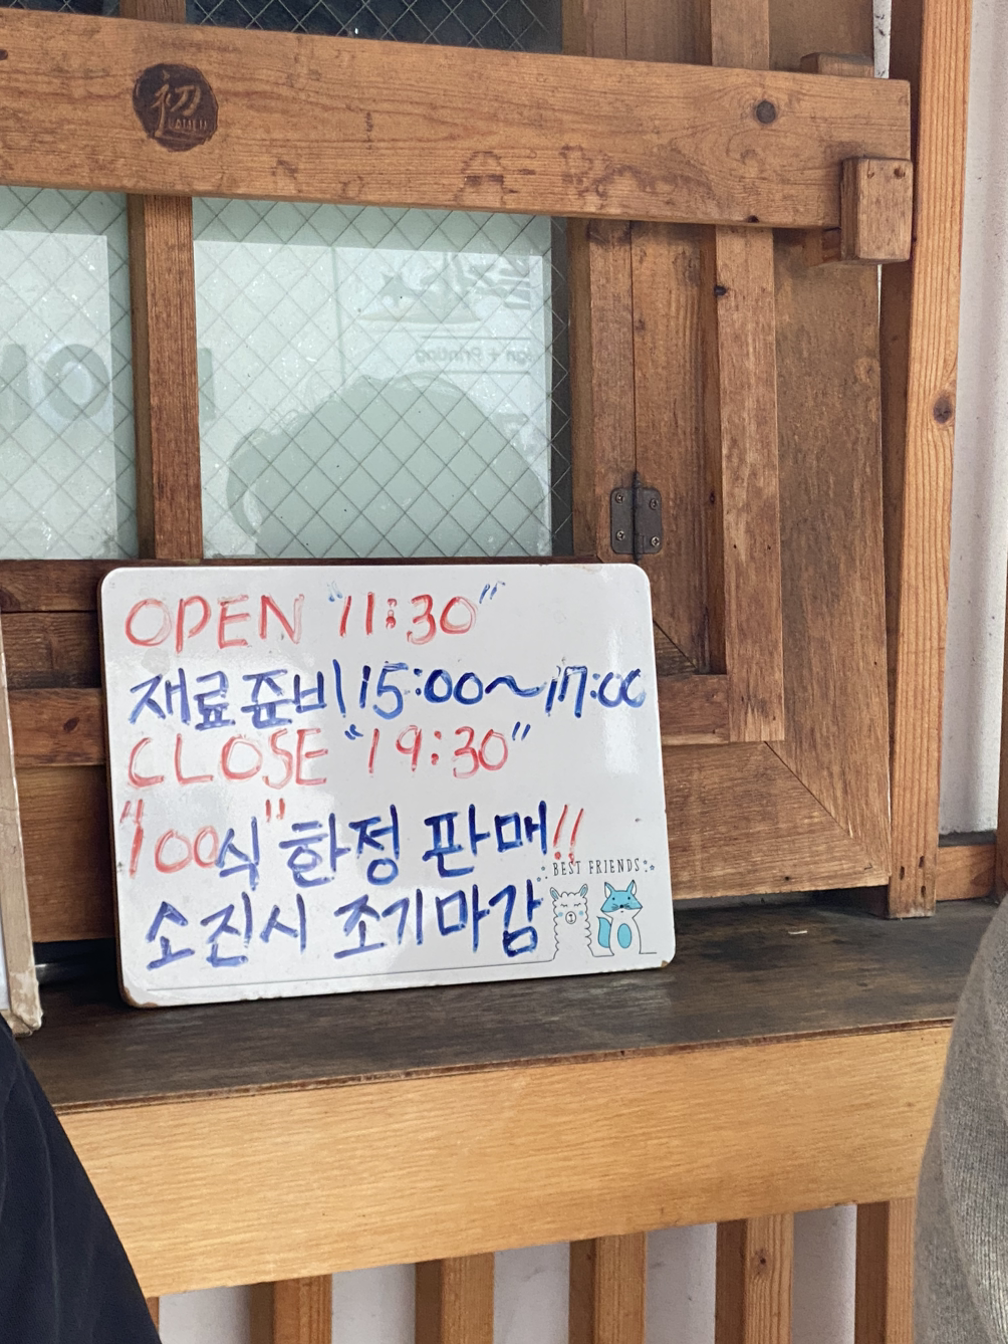 初
OPEN "11:30"
재료쥰비 15:00~17:00
CLOSE "19:30"
"100"식 한정 판매!!
BEST FRIENDS
소진시 조기마감